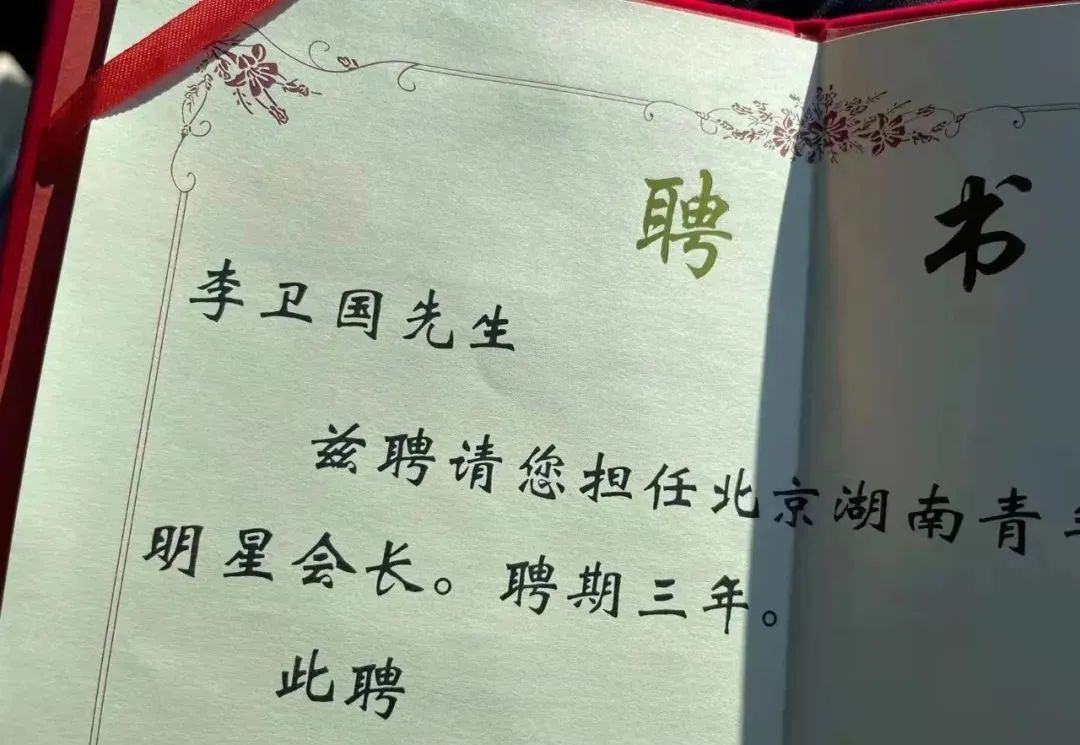 聘 书
李卫国先生
兹聘请您担任北京湖南青
明星会长。聘期三年。
此聘